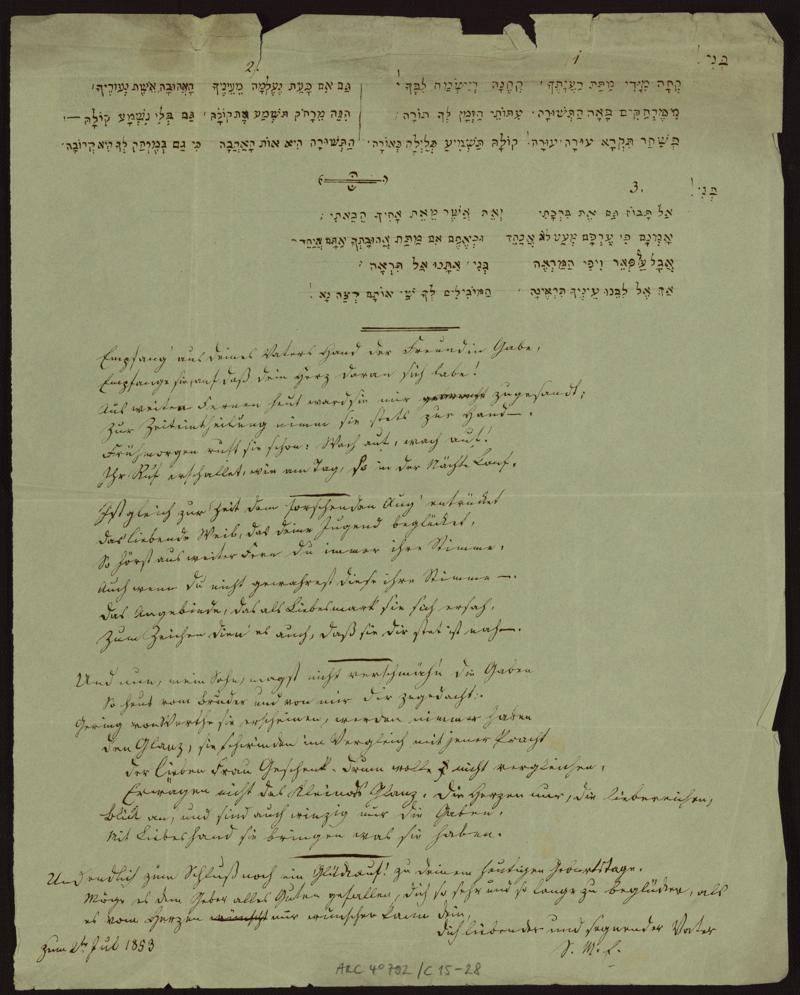 בְּנִי!
1
קְחָה מִיָּדִי מַתַּת רַעְיָתְךָ, קָחֶנָּה וְיִשְׂמַח לִבֶּךָ!
מִמֶּרְחַקִּים בָּאָה הַתְּשׁוּרָה, עִתּוֹתֵי הַזְּמַן לְךָ תוֹרֶה:
בַּשַּׁחַר תִּקְרָא עוּרָה עוּרָה! קוֹלָהּ תַּשְׁמִיעַ בַּלַּיְלָה כָּאוֹרָה.
2.
גַּם אִם כָּעֵת נֶעֶלְמָה מֵעֵינֶיךָ הָאֲהוּבָה אֵשֶׁת נְעוּרֶיךָ,
הִנֵּה מֵרָחֹק תִּשְׁמַע גַּם בְּלִי נִשְׁמָע קוֹלָהּ —
הַתְּשׁוּרָה הִיא אוֹת הָאַהֲבָה כִּי גַם בְּמֶרְחָק לְךָ הִיא קְרוֹבָה.
בְּנִי!
3.
אַל תָּבוּז גַּם אֶת בִּרְכָתִי וְאֵת אֲשֶׁר מֵאֵת אָחִיךָ הֲבֵאתִי:
אָמְנָם כִּי עֶרְכָּם מְעַט לֹא אֲכַחֵד אִם מַתַּת אֲהוּבָתְךָ
אֲבָל וִיפִי הַמַּרְאֶה בְּנִי אַל תִּרְאֶה:
אַךְ אֶל לִבֵּנוּ עֵינֶיךָ תִּרְאֶינָה הַמּוֹבִילִים לְךָ שַׁי אוֹתָם רְצֵה נָא!
Empfang' aus deines Vaters Hand der Freundin Gabe,
Empfange sie, auf daß dein Herz daran sich labe!
Aus weiten Fernen heut ward sie mir zugesandt;
Zur Zeiteintheilung nimm sie stets zur Hand —.
Frühmorgen ruft sie schon: Wach auf, wach auf!
Ihr Ruf erschallet, wie am Tag, so in der Nächte Lauf.
Ist gleich zur Zeit dem forschenden Aug' entrücket
Das liebende Weib, das deine Jugend beglücket,
So hörst aus weiter Fern du immer ihre Stimme,
Auch wenn du nicht gewahrest diese ihre Stimme —.
Das Angebinde, das als Liebesmark sie sich ersah,
Zum Zeichen dien' es auch, daß sie dir stet ist nah —.
Und nun, mein Sohn, magst nicht verschmäh'n die Gaben
So heut vom Bruder und von mir dir zugedacht:
Gering von Werthe sie erscheinen, werden nimmer haben
Den Glanz, sie schwinden im Vergleich mit jener Pracht
Der lieben Frau Geschenk. Drum wolle nicht vergleichen,
Erwägen nicht des Kleinods Glanz. Die Herzen nur, die liebereichen,
Blick an, und sind auch winzig nur die Gaben,
Mit Liebeshand sie bringen was sie haben.
Und endlich zum Schluß noch ein Glückauf! zu deinem heutigen Geburtstage.
Möge es dem Geber alles Guten gefallen, dich so sehr und so lange zu beglücken, als
es vom Herzen wünscht nur wünschen kann dein,
dich liebender und segnender Vater
S. M. E.
zum 2ten Jul 1853
ARC 4° 792 / C 15-28